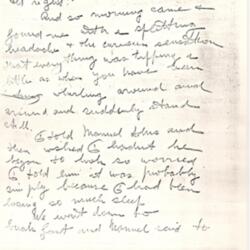 all right?
And so morning came &
found me with a splitting
headache & the curious sensation
that everything was tipping a
little as when you have been
whirling around and
around and suddenly stand
still.
I told Manuel this and
then wished I hadn't he
began to look so worried
I told him it was probably
simply because I had been
losing so much sleep
We went down to
breakfast and Manuel said to